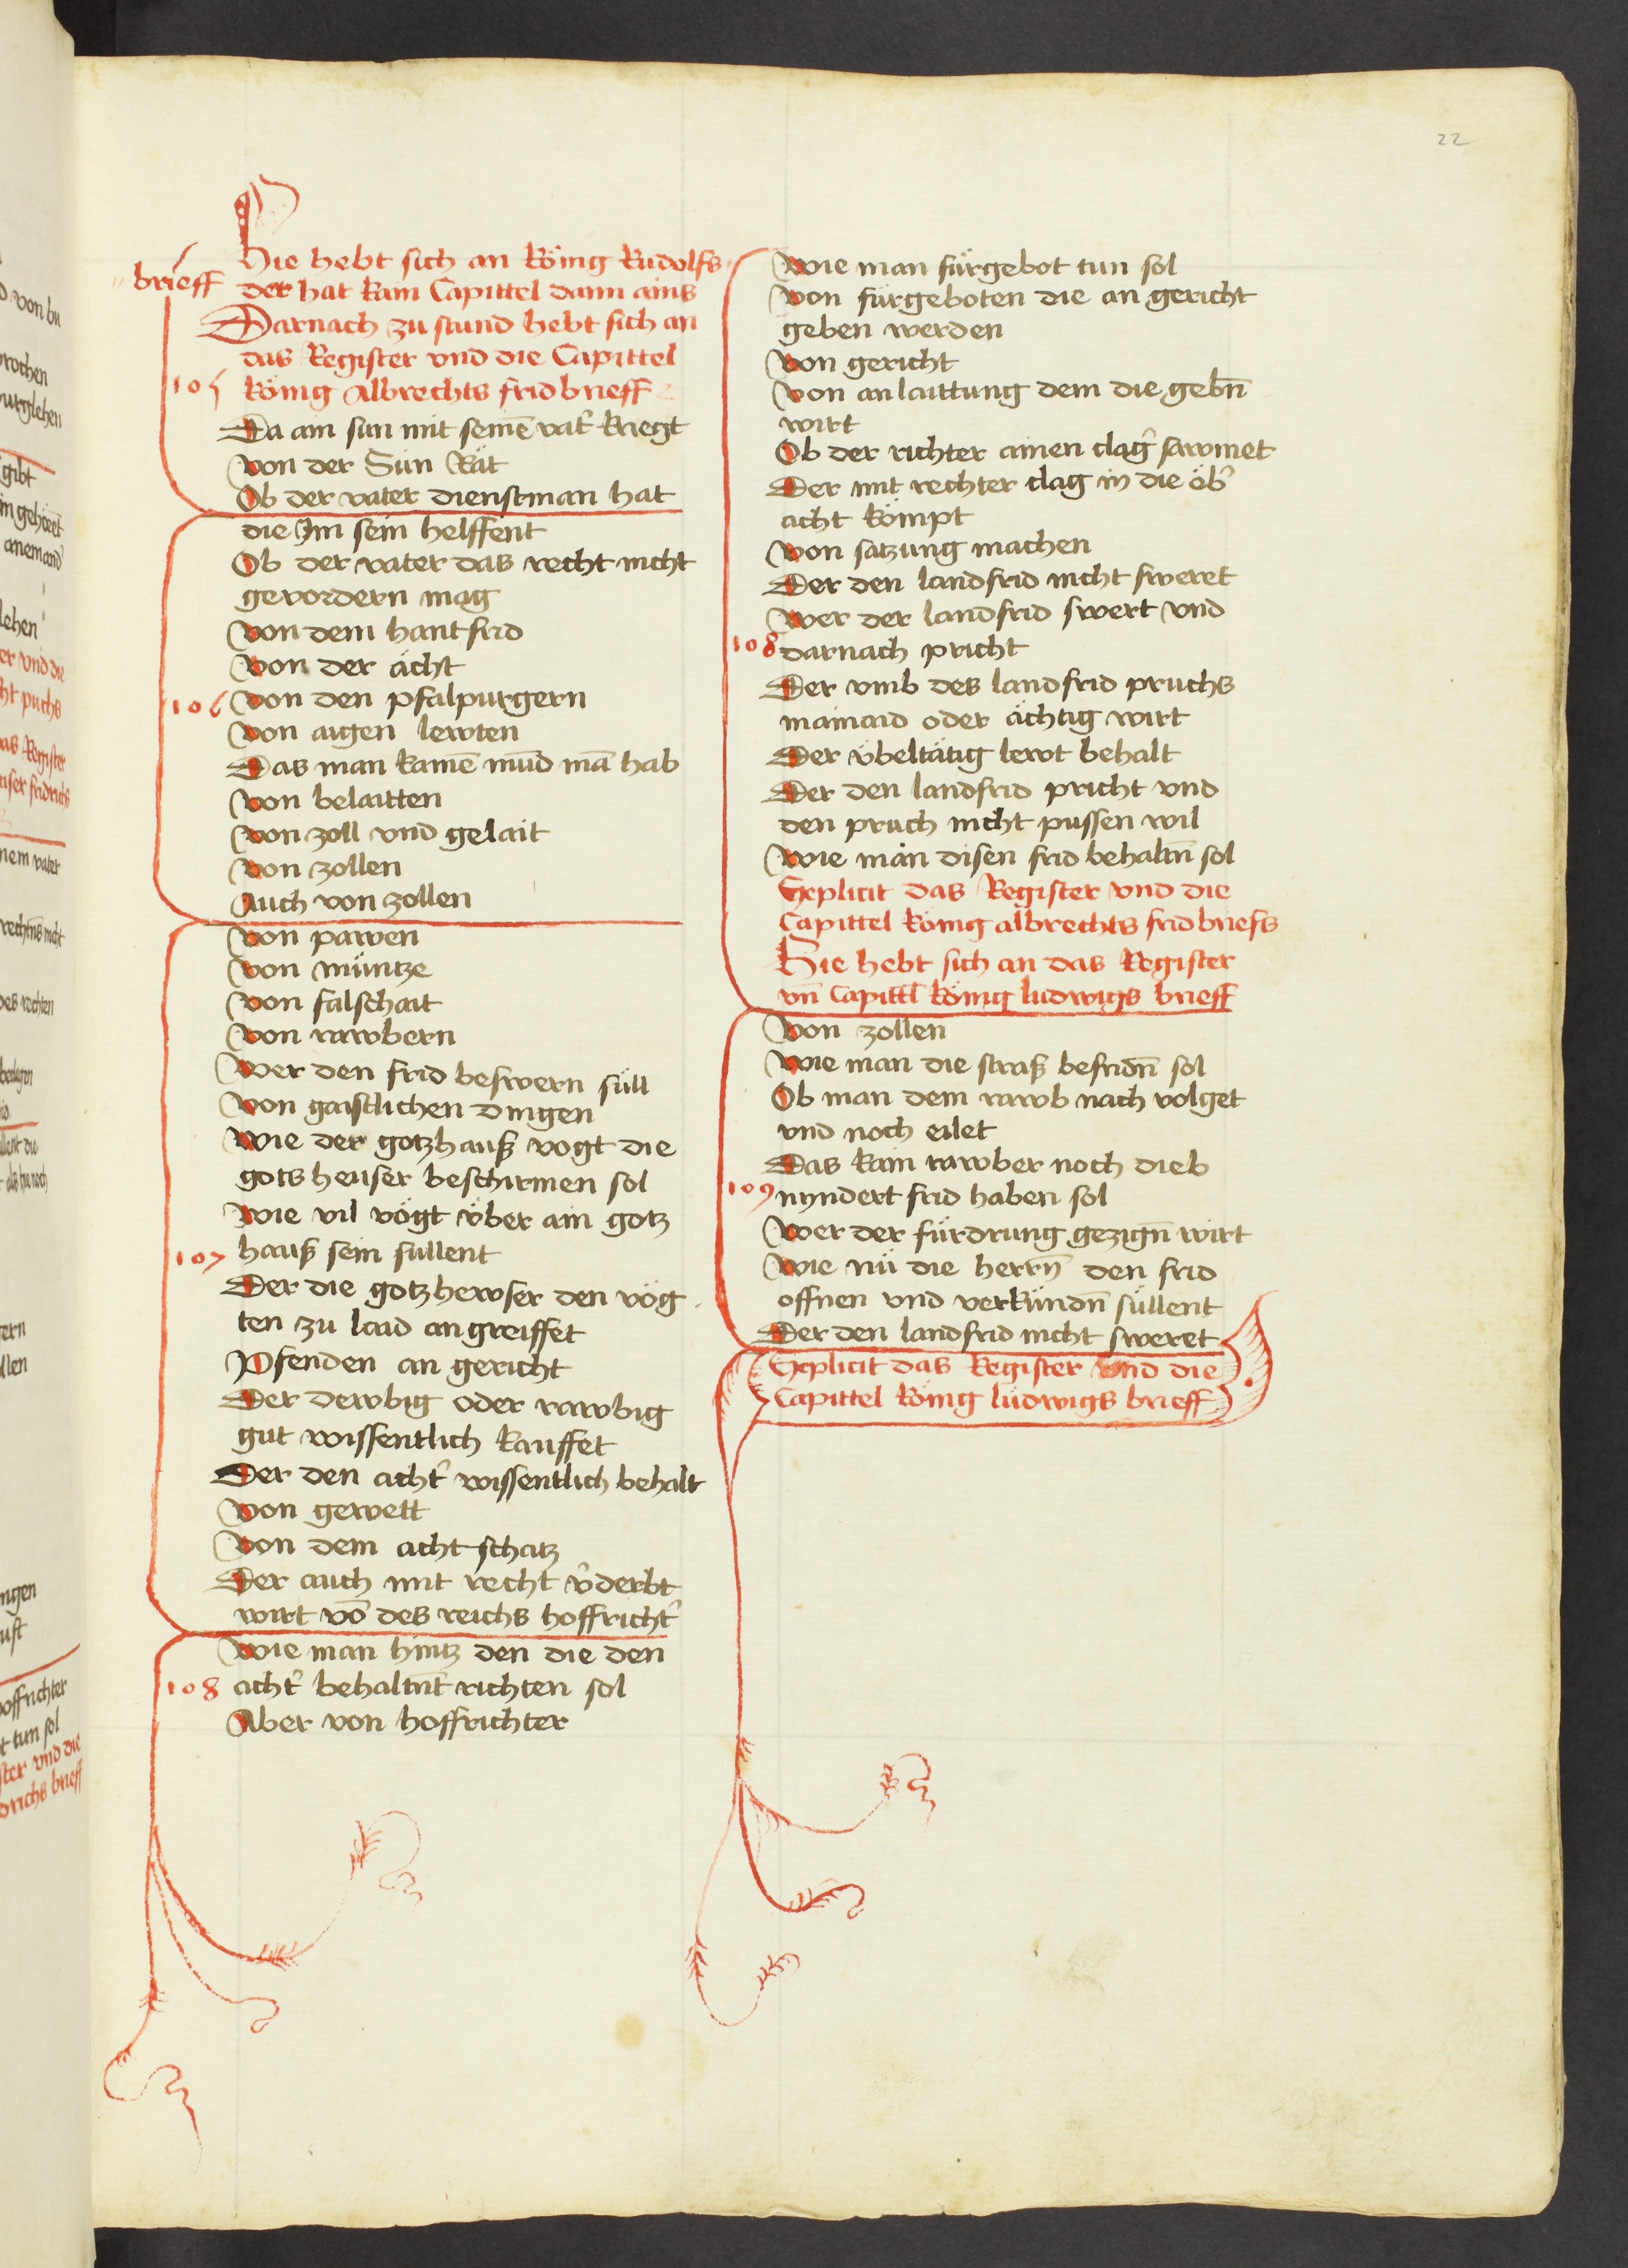 22
Hie hebt sich an König Rudolfs
brieff
der hat kain Capittel dann ains
Darnach zu stund hebt sich an
das Register vnd die Capittel
105
König Albrechts fridbrieff
Da ain sun mit seinē vat̉ kriegt
Von der Sün Rät
Ob der vater dienstman hat
die Jm sein helffent
Ob der vater das recht nicht
gevordern mag
Von dem hantfrid
Von der ächt
106
Von den pfalpurgern
Von aigen lewten
Das man kainē mūd mā hab
Von belaitten
Von zoll vnd gelait
Von zollen
Auch von zollen
Von pawen
Von müntze
Von falschait
Von rawbern
Wer den frid beswern süll
Von gaistlichen dingen
Wie der gotzhauß vogt die
gotsheuser beschirmen sol
Wie vil vögt über ain gotz
107
hauß sein sullent
Der die gotzhewser den vög
ten zu laid angreiffet
Pfenden an gericht
Der dewbig oder rawbig
gut wissentlich kauffet
Der den acht̉ wissentlich behalt
Von gewett
Von dem achtschatz
Der auch mit recht v̉derbt
wirt vō des reichs hoffricht̉
Wie man hintz den die den
108
acht̉ behaltn̄t richten sol
Aber von hoffrichter
Wie man fürgebot tun sol
Von fürgeboten die an gericht
geben werden
Von gericht
Von anlaittung dem die gebn̄
wirt
Ob der richter ainen clag̉ sawmet
Der mit rechter clag in die öb̉
acht kömpt
Von satzung machen
Der den landfrid nicht sweret
Wer der landfrid swert vnd
108
darnach pricht
Der vmb des landfrid pruchs
mainaid oder ächtig wirt
Der übeltätig lewt behalt
Der den landfrid pricht vnd
den pruch nicht pussen wil
Wie man disen frid behaltn̄ sol
Explicit das Register vnd die
Capittel König albrechts fridbriefs
Hie hebt sich an das Register
vn̄ Capittl König ludwigs brieff
Von zollen
Wie man die straß befridn̄ sol
Ob man dem rawb nach volget
vnd noch eilet
Das kain rawber noch dieb
109
nyndert frid haben sol
Wer der fürdrung gezign̄ wirt
Wie nü die herrn̄ den frid
offnen vnd verkündn̄ süllent
Der den landfrid nicht sweret
Explicit das Register vnd die
Capittel König ludwigs brieff